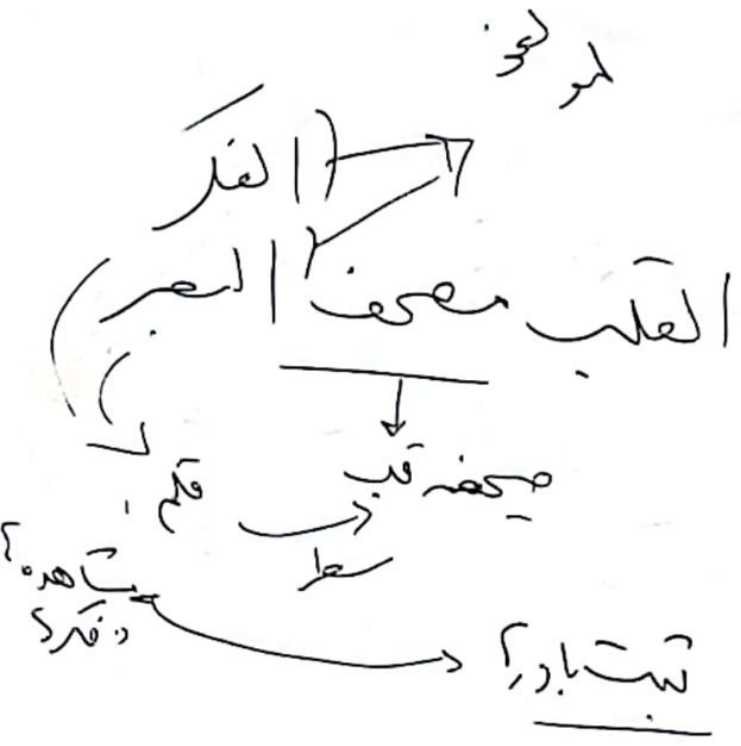 الفکر
القلب مصحف البصر
صحیفه قلب
قلم
سطر
مشاهده؟
فکر؟
ثبت باور؟